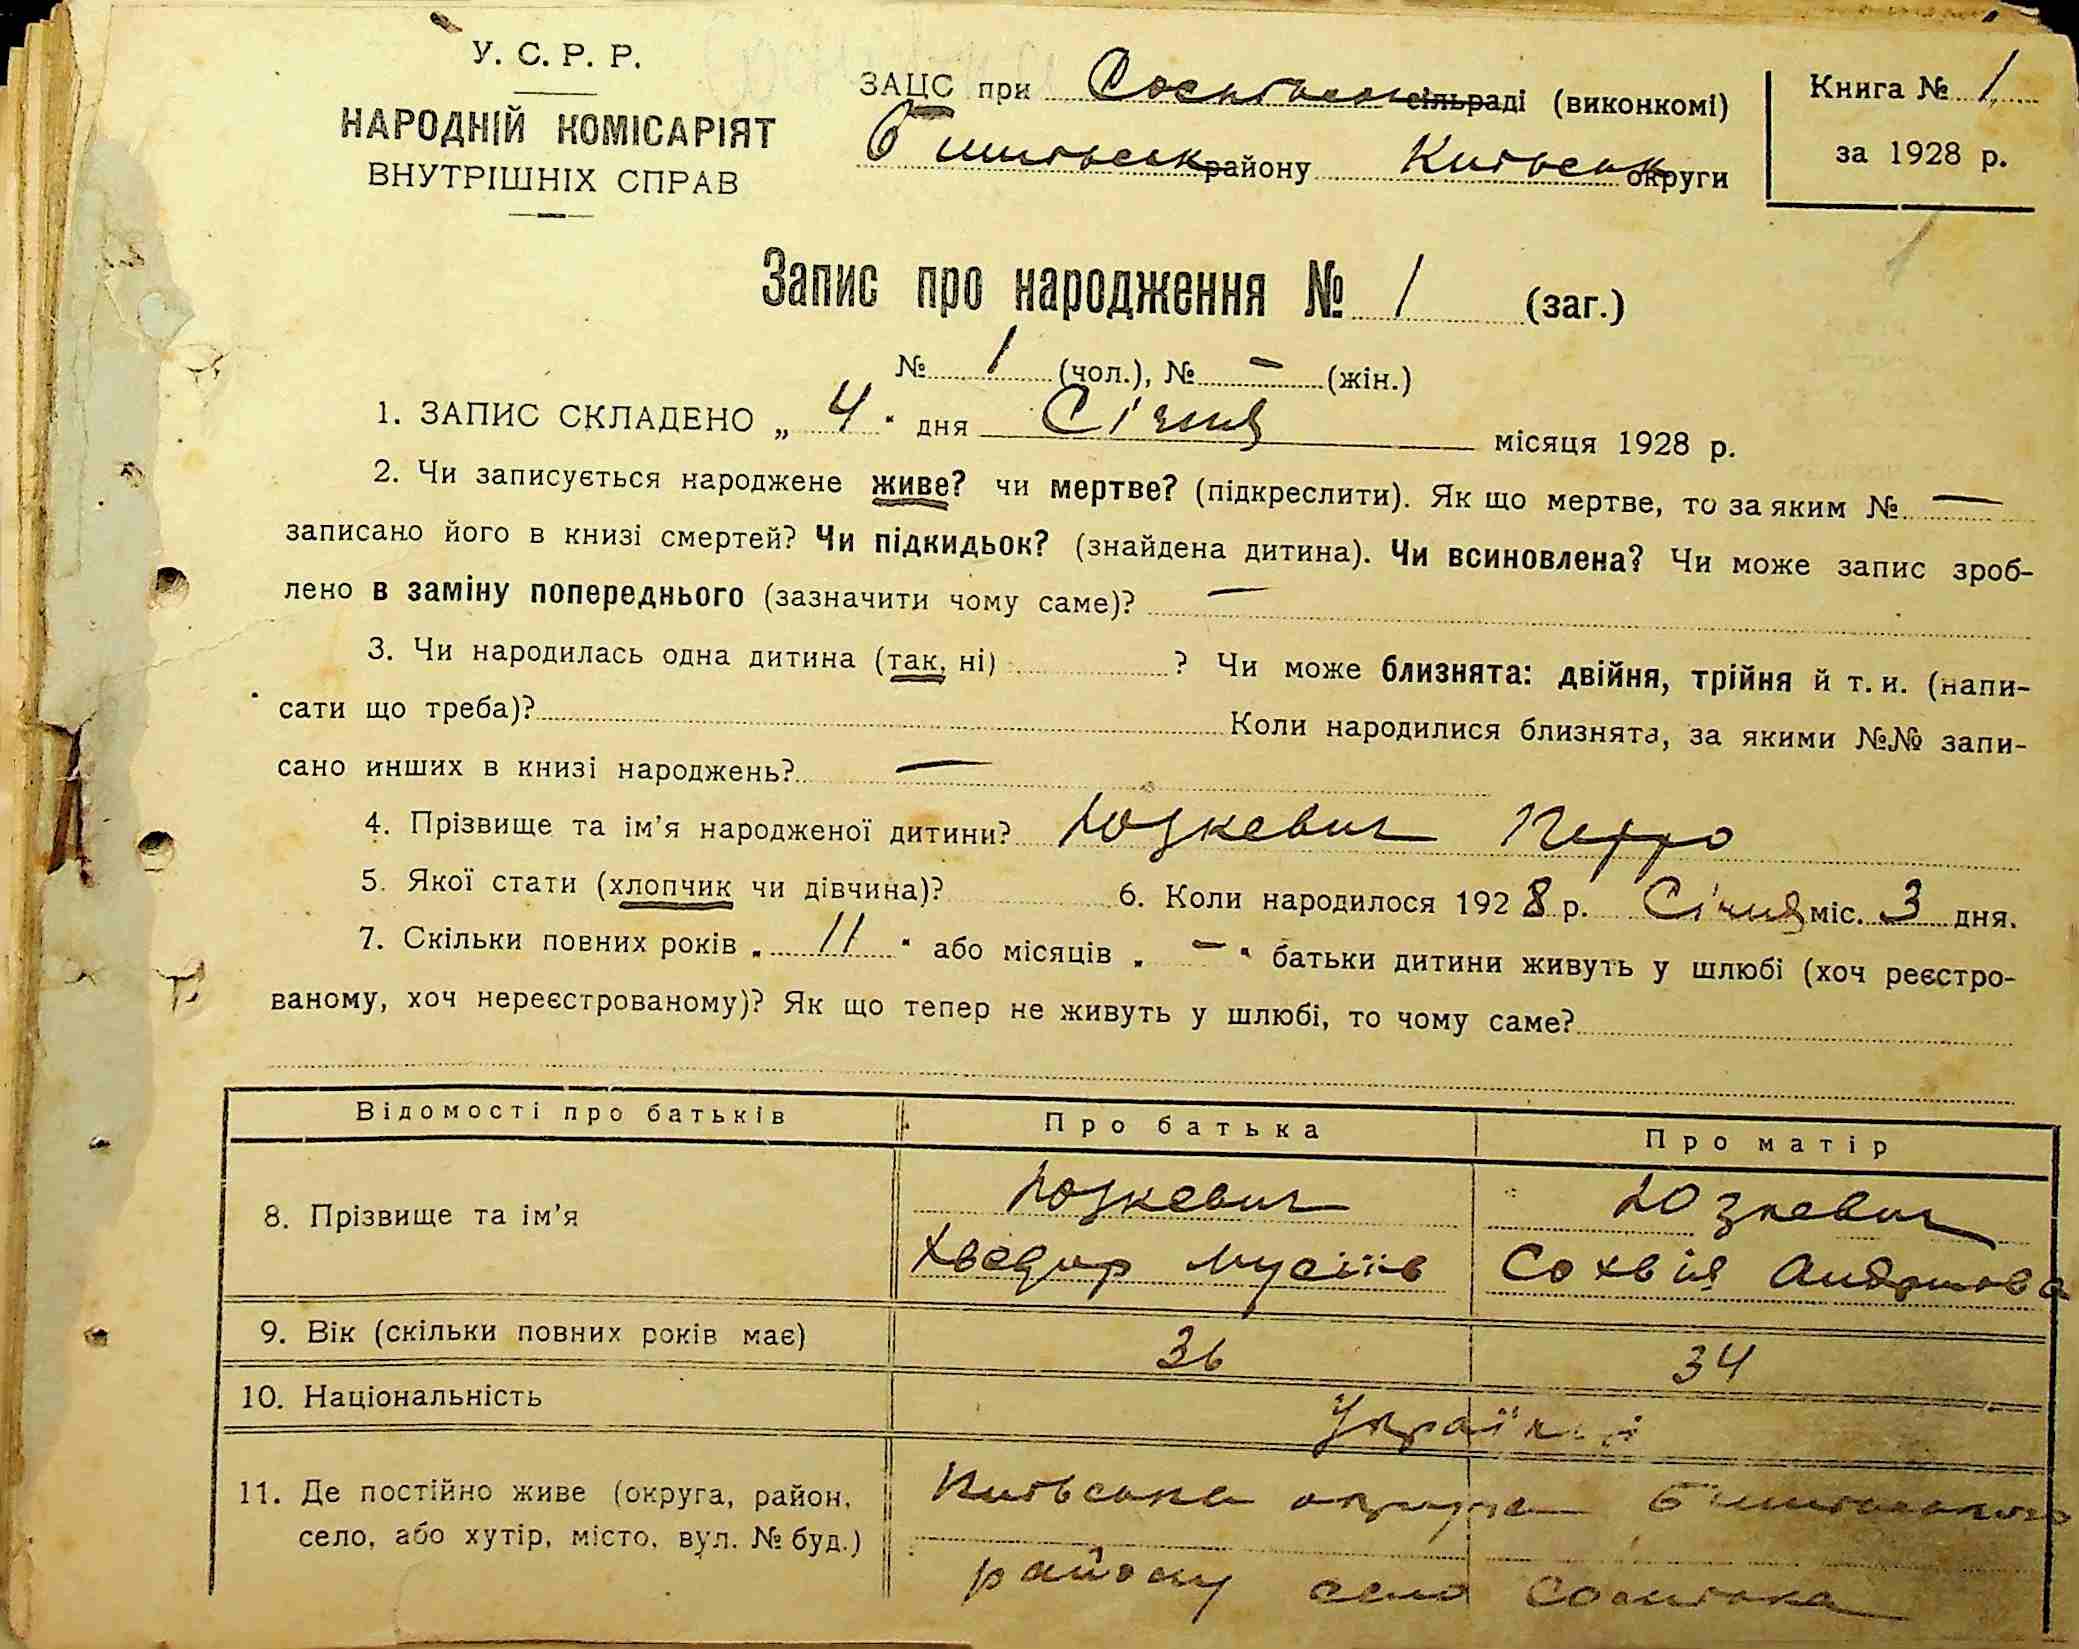 У. С. Р. Р.
НАРОДНІЙ КОМІСАРІЯТ
ВНУТРІШНІХ СПРАВ
ЗАЦС при Соснівськ сільраді (виконкомі)
Бишівськ району Київськ округи
Книга № 1
за 1928 р.
1
Запис про народження № 1 (заг.)
№ 1 (чол.), № — (жін.)
1. ЗАПИС СКЛАДЕНО „ 4 “ дня Січня місяця 1928 р.
2. Чи записується народжене живе? чи мертве? (підкреслити). Як що мертве, то за яким № —
записано його в книзі смертей? Чи підкидьок? (знайдена дитина). Чи всиновлена? Чи може запис зроб-
лено в заміну попереднього (зазначити чому саме)? —
3. Чи народилась одна дитина (так, ні) ? Чи може близнята: двійня, трійня й т. и. (напи-
сати що треба)? Коли народилися близнята, за якими №№ запи-
сано инших в книзі народжень? —
4. Прізвище та ім'я народженої дитини? Юзкевич Петро
5. Якої стати (хлопчик чи дівчина)? 6. Коли народилося 1928 р. Січня міс. 3 дня.
7. Скільки повних років „ 11 “ або місяців „ — “ батьки дитини живуть у шлюбі (хоч реєстро-
ваному, хоч нереєстрованому)? Як що тепер не живуть у шлюбі, то чому саме?
Відомості про батьків Про батька Про матір
8. Прізвище та ім'я Юзкевич Юзкевич
Хведир Мусіїв Сохвія
9. Вік (скільки повних років має) 36 34
10. Національність Українці
11. Де постійно живе (округа, район, Київська округа Бишівського
село, або хутір, місто, вул. № буд.) району село Соснівка